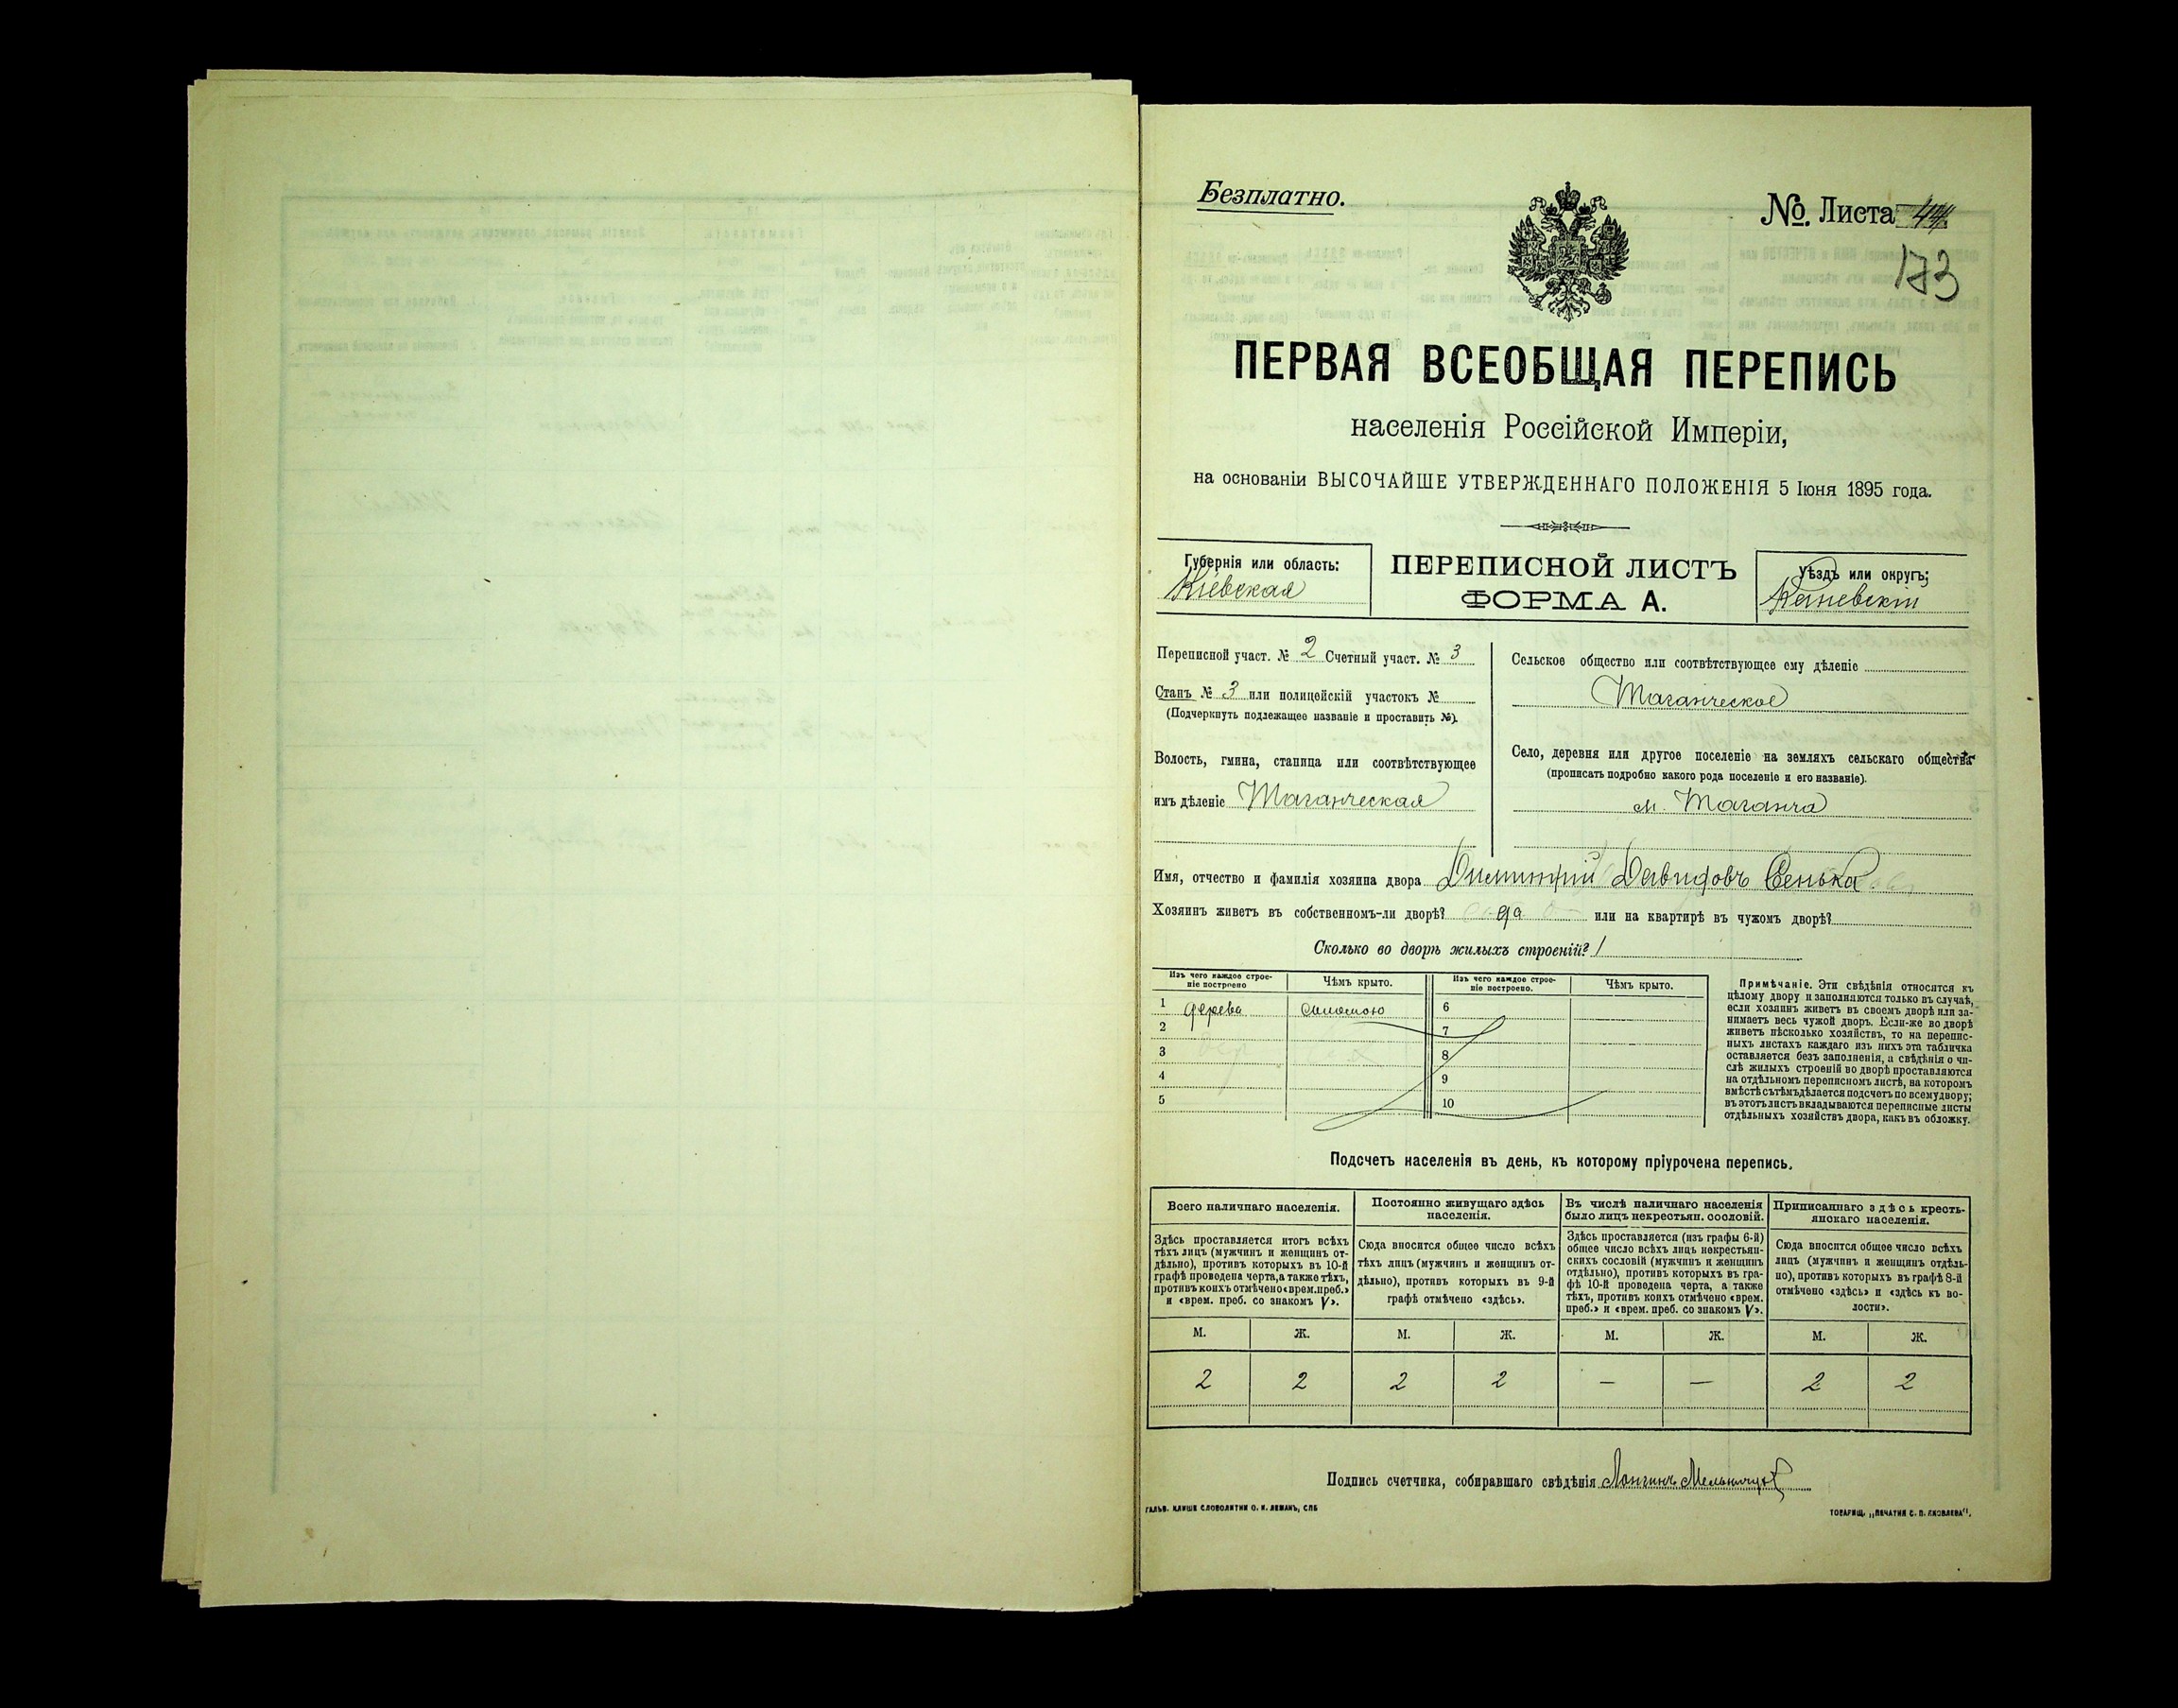 Безплатно.
№. Листа 44
173
ПЕРВАЯ ВСЕОБЩАЯ ПЕРЕПИСЬ
населенія Россійской Имперіи,
на основаніи ВЫСОЧАЙШЕ УТВЕРЖДЕННАГО ПОЛОЖЕНІЯ 5 Іюня 1895 года.
Губернія или область:
Кіевская
ПЕРЕПИСНОЙ ЛИСТЪ
ФОРМА А.
Уѣздъ или округъ:
Каневскій
Переписной участ. № 2 Счетный участ. № 3
Станъ № 3 или полицейскій участокъ №
(Подчеркнуть подлежащее названіе и проставить №).
Волость, гмина, станица или соотвѣтствующее
имъ дѣленіе Таганческая
Сельское общество или соотвѣтствующее ему дѣленіе
Таганческое
Село, деревня или другое поселеніе на земляхъ сельскаго общества
(прописать подробно какого рода поселеніе и его названіе).
м. Таганча
Имя, отчество и фамилія хозяина двора Димитрій Давидовъ Сенька
Хозяинъ живетъ въ собственномъ-ли дворѣ? да или на квартирѣ въ чужомъ дворѣ?
Сколько во дворѣ жилыхъ строеній? 1
Изъ чего каждое строе-
ніе построено
Чѣмъ крыто.
Изъ чего каждое строе-
ніе построено.
Чѣмъ крыто.
1 дерева соломою 6
2 7
3 8
4 9
5 10
Примѣчаніе. Эти свѣдѣнія относятся къ
цѣлому двору и заполняются только въ случаѣ,
если хозяинъ живетъ въ своемъ дворѣ или за-
нимаетъ весь чужой дворъ. Если-же во дворѣ
живетъ нѣсколько хозяйствъ, то на перепис-
ныхъ листахъ каждаго изъ нихъ эта табличка
оставляется безъ заполненія, а свѣдѣнія о чи-
слѣ жилыхъ строеній во дворѣ проставляются
на отдѣльномъ переписномъ листѣ, на которомъ
вмѣстѣ съ тѣмъ дѣлается подсчетъ по всему двору;
въ этотъ листъ вкладываются переписные листы
отдѣльныхъ хозяйствъ двора, какъ въ обложку.
Подсчетъ населенія въ день, къ которому пріурочена перепись.
Всего наличнаго населенія.
Здѣсь проставляется итогъ всѣхъ
тѣхъ лицъ (мужчинъ и женщинъ от-
дѣльно), противъ которыхъ въ 10-й
графѣ проведена черта, а также тѣхъ,
противъ коихъ отмѣчено «врем. преб.»
и «врем. преб. со знакомъ V».
Постоянно живущаго здѣсь
населенія.
Сюда вносится общее число всѣхъ
тѣхъ лицъ (мужчинъ и женщинъ от-
дѣльно), противъ которыхъ въ 9-й
графѣ отмѣчено «здѣсь».
Въ числѣ наличнаго населенія
было лицъ некрестьян. сословій.
Здѣсь проставляется (изъ графы 6-й)
общее число всѣхъ лицъ некрестьян-
скихъ сословій (мужчинъ и женщинъ
отдѣльно), противъ которыхъ въ гра-
фѣ 10-й проведена черта, а также
тѣхъ, противъ коихъ отмѣчено «врем.
преб.» и «врем. преб. со знакомъ V».
Приписаннаго здѣсь кресть-
янскаго населенія.
Сюда вносится общее число всѣхъ
лицъ (мужчинъ и женщинъ отдѣль-
но), противъ которыхъ въ графѣ 8-й
отмѣчено «здѣсь» и «здѣсь къ во-
лости».
М. Ж. М. Ж. М. Ж. М. Ж.
2 2 2 2 — — 2 2
Подпись счетчика, собиравшаго свѣдѣнія Лонгинъ
ГАЛЬВ. КЛИШЕ СЛОВОЛИТНИ О. И. ЛЕМАНЪ, СПБ
ТОВАРИЩ. „ПЕЧАТНЯ С. П. ЯКОВЛЕВА".